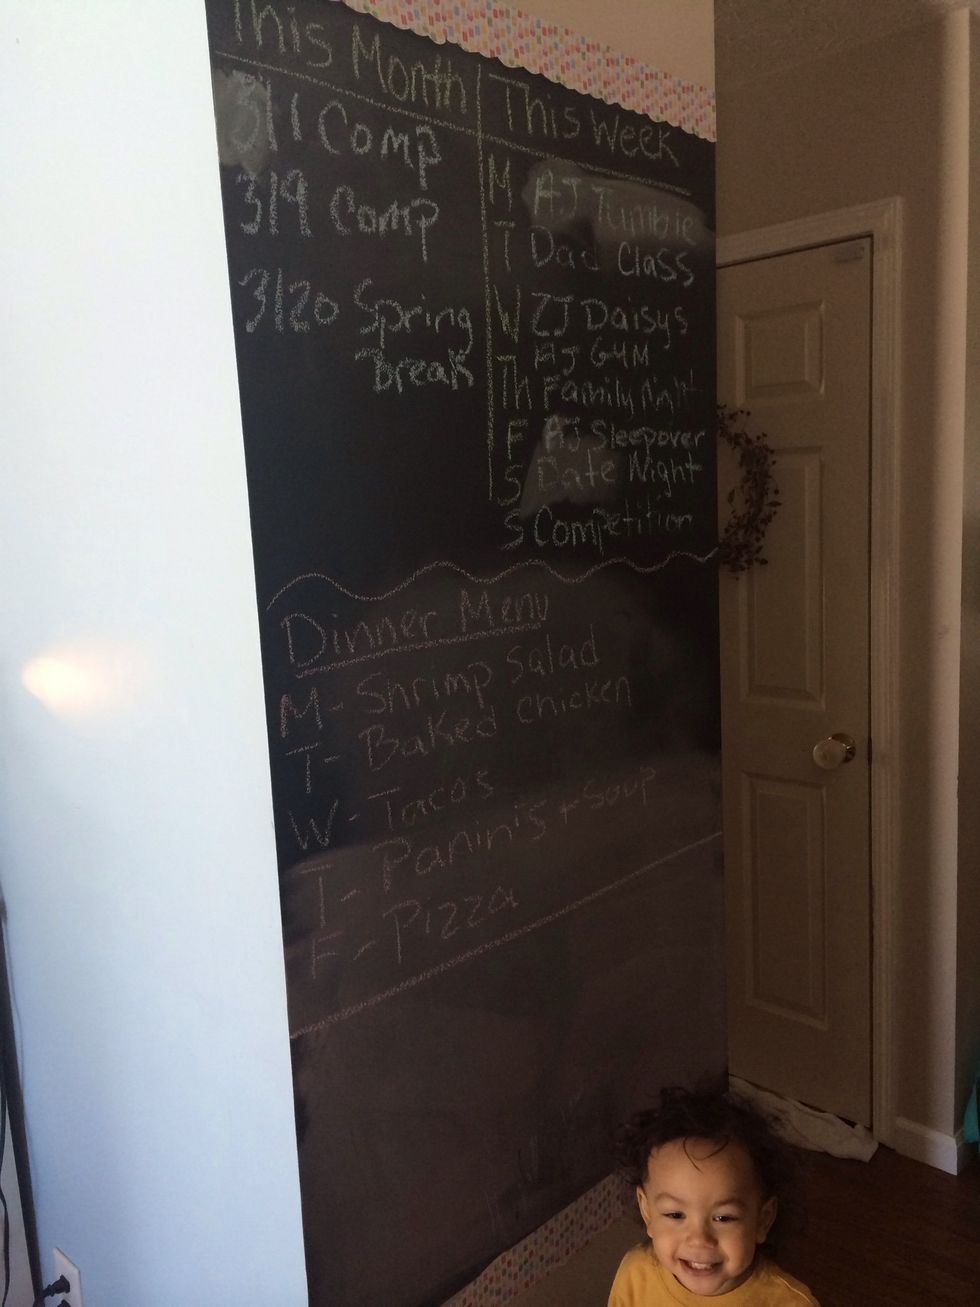 This Month
3/1 Comp
3/9 Comp
3/20 Spring
Break
This Week
M AJ Tumble
T Dad Class
W ZJ Daisys
AJ GYM
Th Family Night
F AJ Sleepover
S Date Night
S Competition
Dinner Menu
M - Shrimp salad
T - Baked chicken
W - Tacos
T - Panini's + Soup
F - Pizza